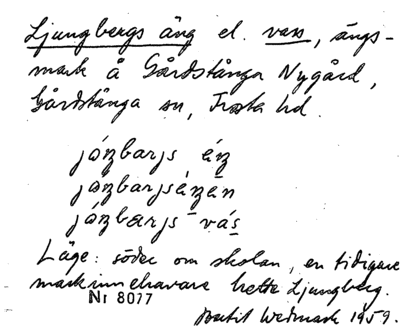 Ljungbergs äng el. vass, ängs-
mark å Gårdstånga Nygård,
Gårdstånga sn, Frosta hd.
jóŋbarjs éŋ
jóŋbarjséŋen
jóŋbarjs vás
Läge: söder om skolan, en tidigare
markinnehavare hette Ljungberg.
Nr 8077
Bertil Wedmark 1959.